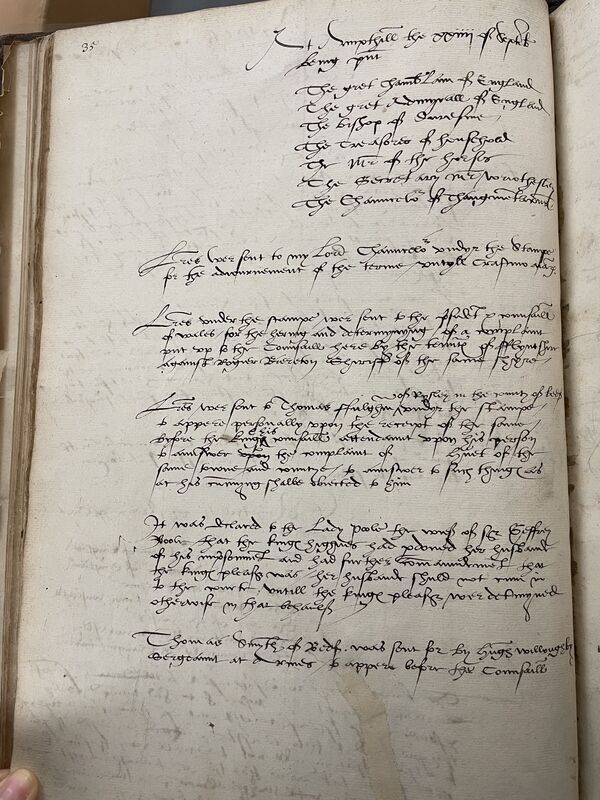 35
At Ampthill the xxiiii of Septēbr
being pñt
The gret Chamb'lain of England
The gret Admyrall of England
The Bishop of Duresme
The Treasorer of houshold
The Mr of the horses
The Secretary Mr Wriothesley
The Chauncelor of Thaugmētacōn
Lres wer sent to my Lord Chauncelor undyr the Stampe
for the adiournement of the terme untyll Crastino
Lres under the stampe wer sent to the Psidēt & counsaill
of Wales, for the hering and determynyng of a complaint
put up to the Counsaill here by the tennts of Flyntshire
against Rogier Brereton Shiriff of the same shyre
of Rysley in the county of
Lres wer sent to Thomas undyr the stampe
to appere personally upon the receipt of the same
before the kings his counsaill attendant upon his person
to answer upon the complaint of of the
same towne and countye, to aunswer to such things as
at his cumyng shalbe obiected to him
It was declared to the Lady Poole the wief of Sr Geffrey
Poole that the kings highnes had pdoned her husband
of his imprisonmēt and had further Cōmaundmēt that
the kings pleasr was her husbande shuld not cum in
to the courte untill the kings pleasr wer detmyned
otherwise in that behaulf
Thomas Smyth of Bedf. was sent for by Hugh Willoughby
Sergeaunt at Armes to appere before the Counsaill